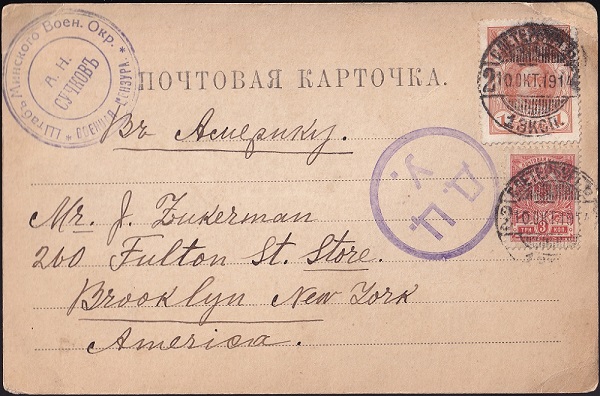 Штабъ Минского Воен. Окр.
* ВОЕННАЯ ЦЕНЗУРА *
А. Н.
СУЧКОВЪ
ПОЧТОВАЯ КАРТОЧКА.
Въ Америку.
Д. Ц.
У.
Mr. J. Zukerman
260 Fulton St. Store.
Brooklyn New York
America.
2
10.OKT.1914
1 ЭКСП.
10.OKT.1914
3